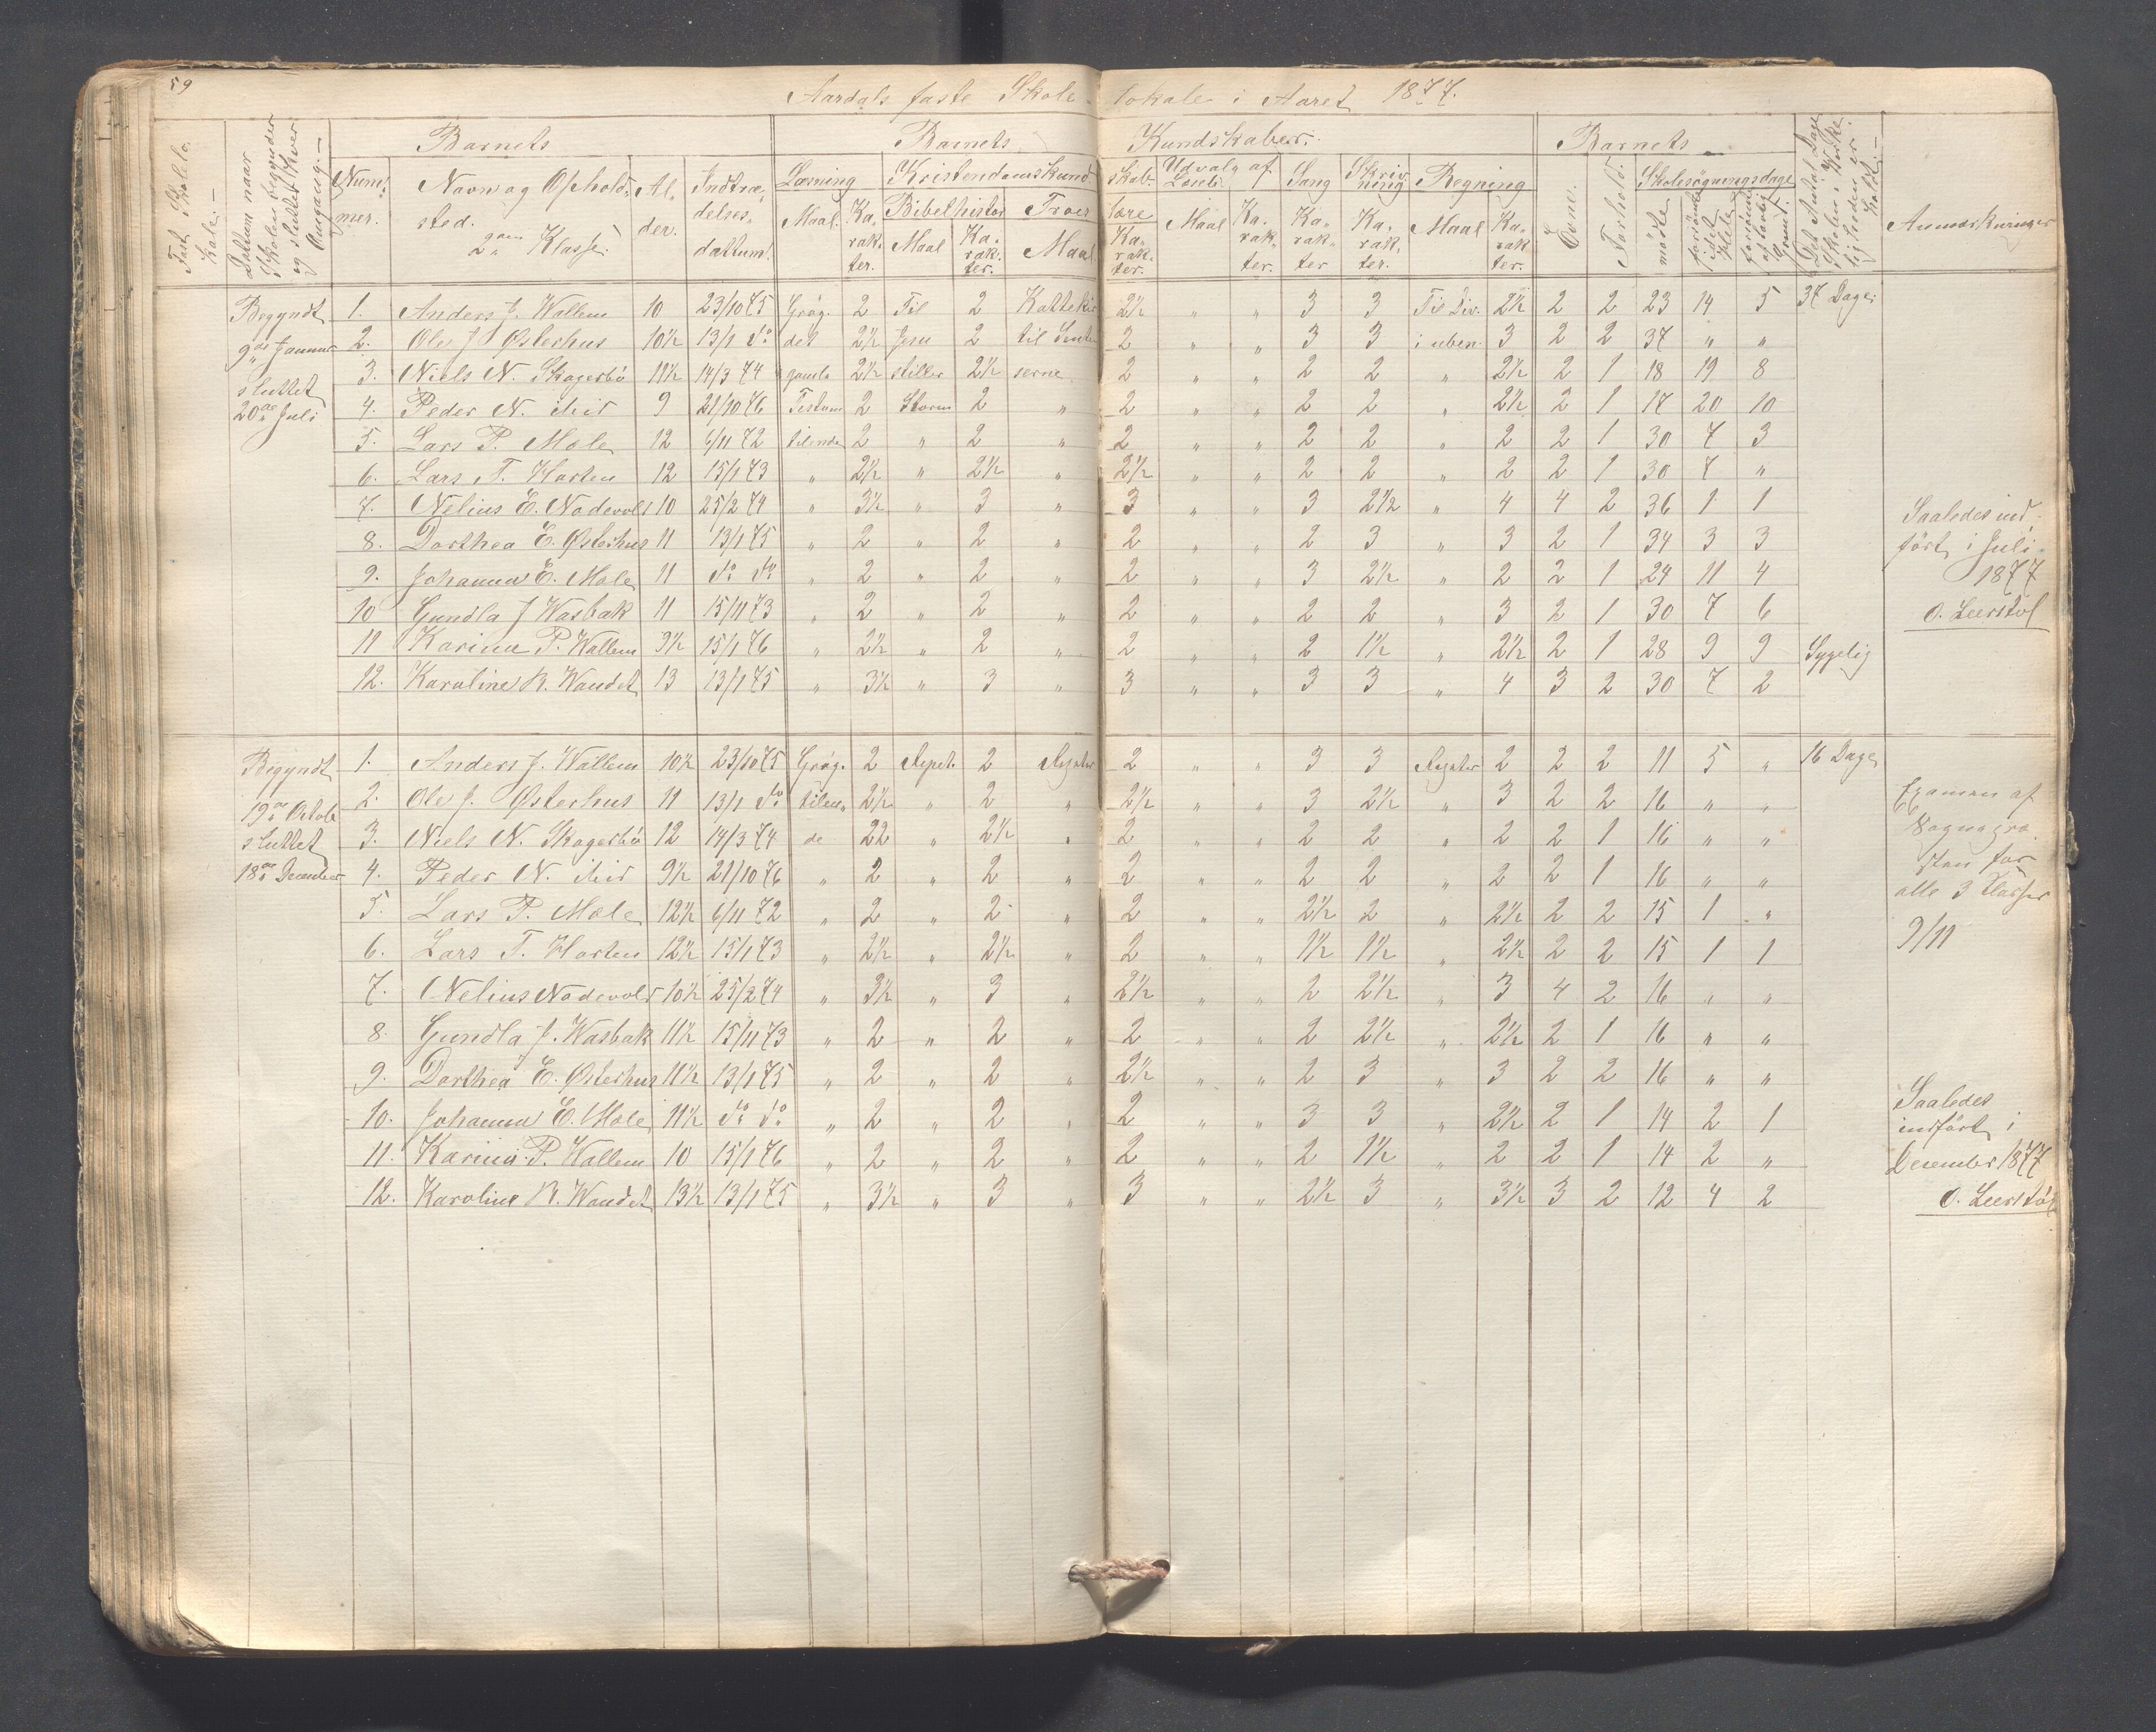 59
Aardals faste Skole lokale i Aaret 1877.
Fast Skolelokale.
Dattum naar Skolen begynder og sluttet hver Omgang.
Barnets
Nummer.
Navn og Opholdssted.
2den Klasse
Alder.
Indtrædelsesdattum.
Barnets Kundskaber.
Læsning
Maal. Karakter.
Kristendomskundskab.
Bibelhistor
Maal Karakter.
Troeslære
Maal Karakter.
Udvalg af Læseb.
Maal Karakter.
Sang
Karakter
Skrivning
Karakter.
Regning
Maal Karakter.
Barnets
Evne.
Forhold.
Skolesøgningsdage
mødte
forsømte i det Hele
forsømte af lovlig Grund.
Det Antal Dage Skolen i Virkeligheden er holdt.
Anmærkninger
Begyndt 9de Januar sluttet 20de Juli
1. Anders J. Wallem 10 23/10 75 Gróg. 2 Til 2 Kattekis 2½ " " 3 3 Til Div. 2½ 2 2 23 14 5 37 Dage
2. Ole J. Østerhus 10½ 13/1 do det 2½ Jesu 2 til 2 " " 3 3 i uben. 3 2 2 37 " "
3. Niels N. Skogerbø 11½ 14/3 74 gamle 2½ stiller 2½ serne 2 " " 2 2 " 2½ 2 1 18 19 8
4. Peder N. ibid 9 21/10 76 Testam 2 Storm 2 " 2 " " 2 2 " 2½ 2 1 17 20 10
5. Lars P. Mæle 12 6/11 72 tilende 2 " 2 " 2 " " 2 2 " 2 2 1 30 7 3
6. Lars T. Hosten 12 15/1 73 " 2½ " 2½ " 2½ " " 2 2 " 2 2 1 30 7 "
7. Nelius E. Nodevold 10 25/2 74 " 3½ " 3 " 3 " " 3 2½ " 4 4 2 36 1 1
8. Dorthea E. Østerhus 11 13/1 75 " 2 " 2 " 2 " " 2 3 " 3 2 1 34 3 3
9. Johanna E. Mæle 11 do do " 2 " 2 " 2 " " 3 2½ " 2 2 1 24 11 4
10 Gundla J Wasbak 11 15/11 73 " 2 " 2 " 2 " " 2 2 " 3 2 1 30 7 6
11 Karina P. Wallem 9½ 15/1 76 " 2½ " 2 " 2 " " 2 1½ " 2½ 2 1 28 9 9 Sygelig
12. Karoline R. Wandet 13 13/1 75 " 3½ " 3 " 3 " " 3 3 " 4 3 2 30 7 2
Saaledes indført i Juli 1877
O. Leerstøl
Begyndt 19de Octob sluttet 18de December
1. Anders J. Wallem 10½ 23/10 75 Gróg. 2 Repet. 2 Repeter 2 " " 3 3 Repeter 2 2 2 11 5 " 16 Dage
2. Ole J. Østerhus 11 13/1 do tilen 2½ " 2 " 2½ " " 3 2½ " 3 2 2 16 " "
3. Niels N. Skogerbø 12 14/3 74 de 22 " 2½ " 2 " " 2 2 " 2 2 1 16 " "
4. Peder N. ibid 9½ 21/10 76 " 2 " 2 " 2 " " 2 2 " 2 2 1 16 " "
5. Lars P. Mæle 12½ 6/11 72 " 2 " 2 " 2 " " 2½ 2 " 2½ 2 2 15 1 "
6. Lars T. Hosten 12½ 15/1 73 " 2½ " 2½ " 2 " " 1½ 1½ " 2½ 2 2 15 1 1
7. Nelius Nodevold 10½ 25/2 74 " 3½ " 3 " 2½ " " 2 2½ " 3 4 2 16 " "
8. Gundla J. Wasbak 11½ 15/11 73 " 2 " 2 " 2 " " 2 2½ " 2½ 2 1 16 " "
9. Dorthea E. Østerhus 11½ 13/1 75 " 2 " 2 " 2½ " " 2 3 " 3 2 2 16 " "
10. Johanna E. Mæle 11½ do do " 2 " 2 " 2 " " 3 3 " 2½ 2 1 14 2 1
11. Karina P. Wallem 10 15/1 76 " 2 " 2 " 2 " " 2 1½ " 2 2 1 14 2 "
12. Karoline R. Wandet 13½ 13/1 75 " 3½ " 3 " 3 " " 2½ 3 " 3½ 3 2 12 4 2
Examen af
Sognepresten for
alle 3 Klasser
9/11
Saaledes
indført i
December 1877
O. Leerstøl